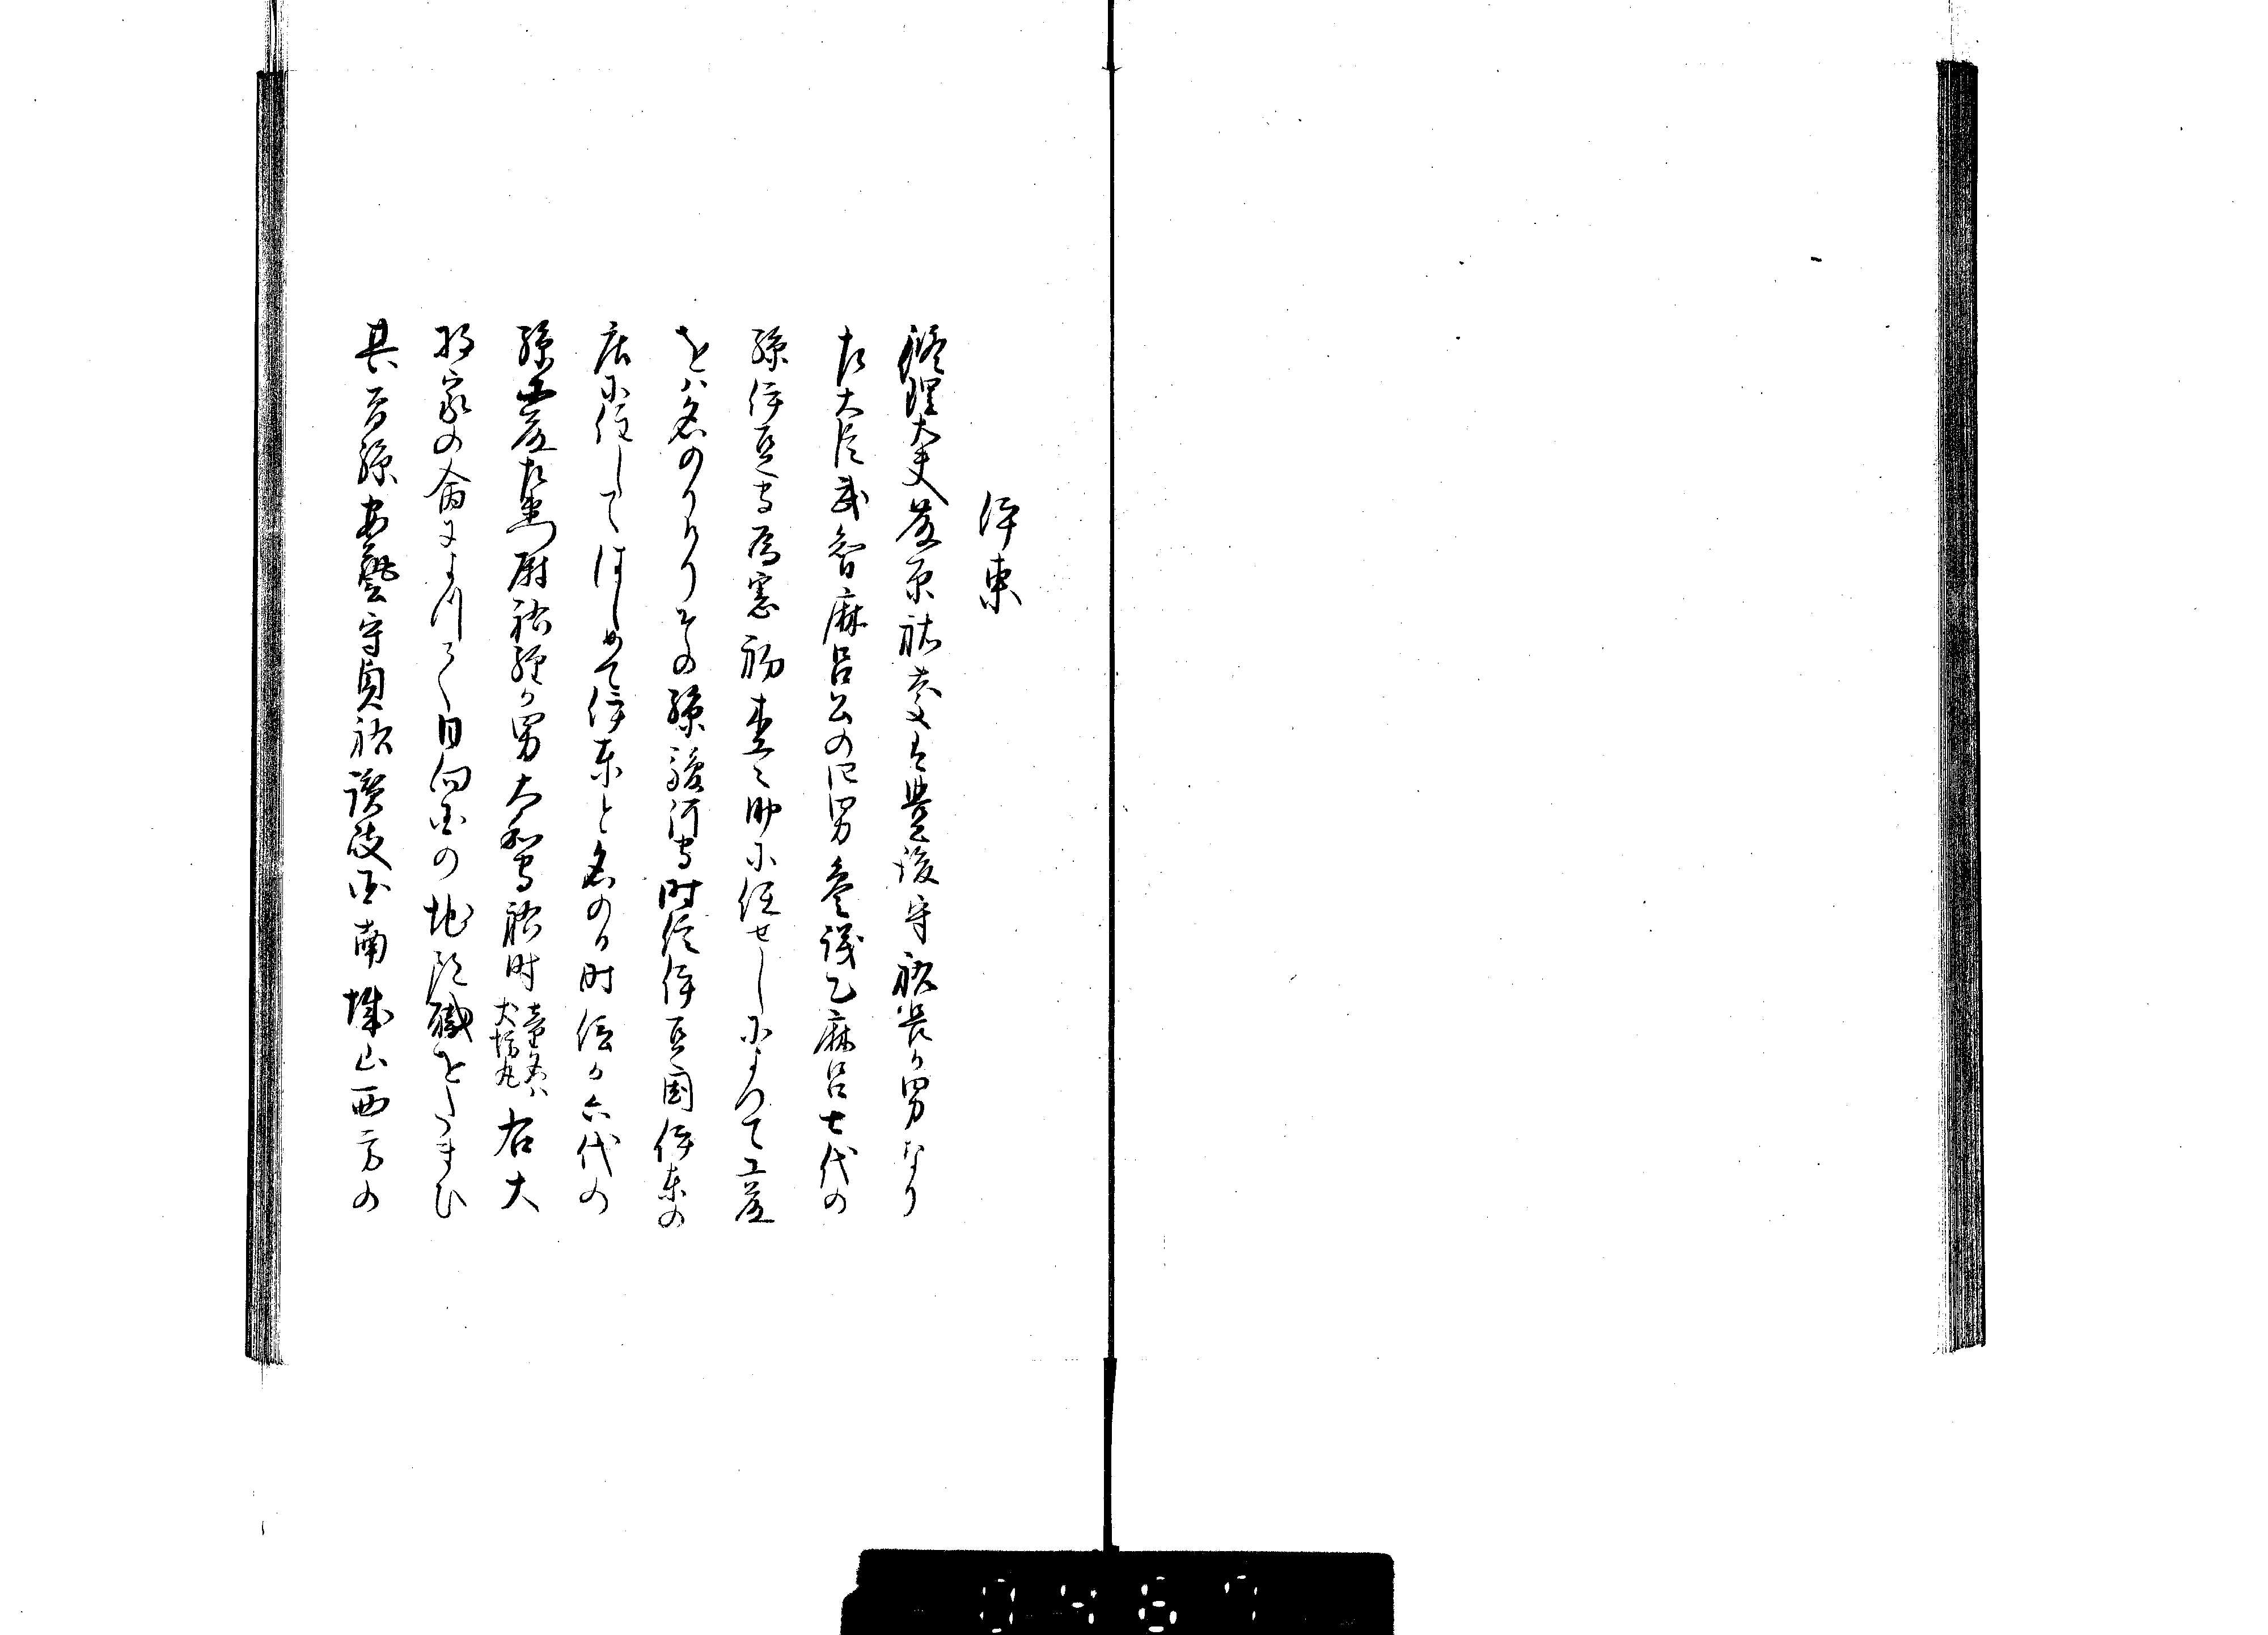 伊東
修理大夫藤原祐慶は豊後守祐兵か男なり
左大臣武智麻呂公の四男参議乙麻呂七代の
孫伊豆守為憲初木工助に任せしによつて工藤
をハ名のりけりその孫駿河守時信伊豆国伊東の
庄に住してはしめて伊東と名のる時信か六代の
孫工藤左衛門尉祐経か男大和守祐時
童名ハ
犬房丸
右大
将家の命によつて日向国の地頭職をたまひ
其曽孫安藝守貞祐讃岐国南城山西方の